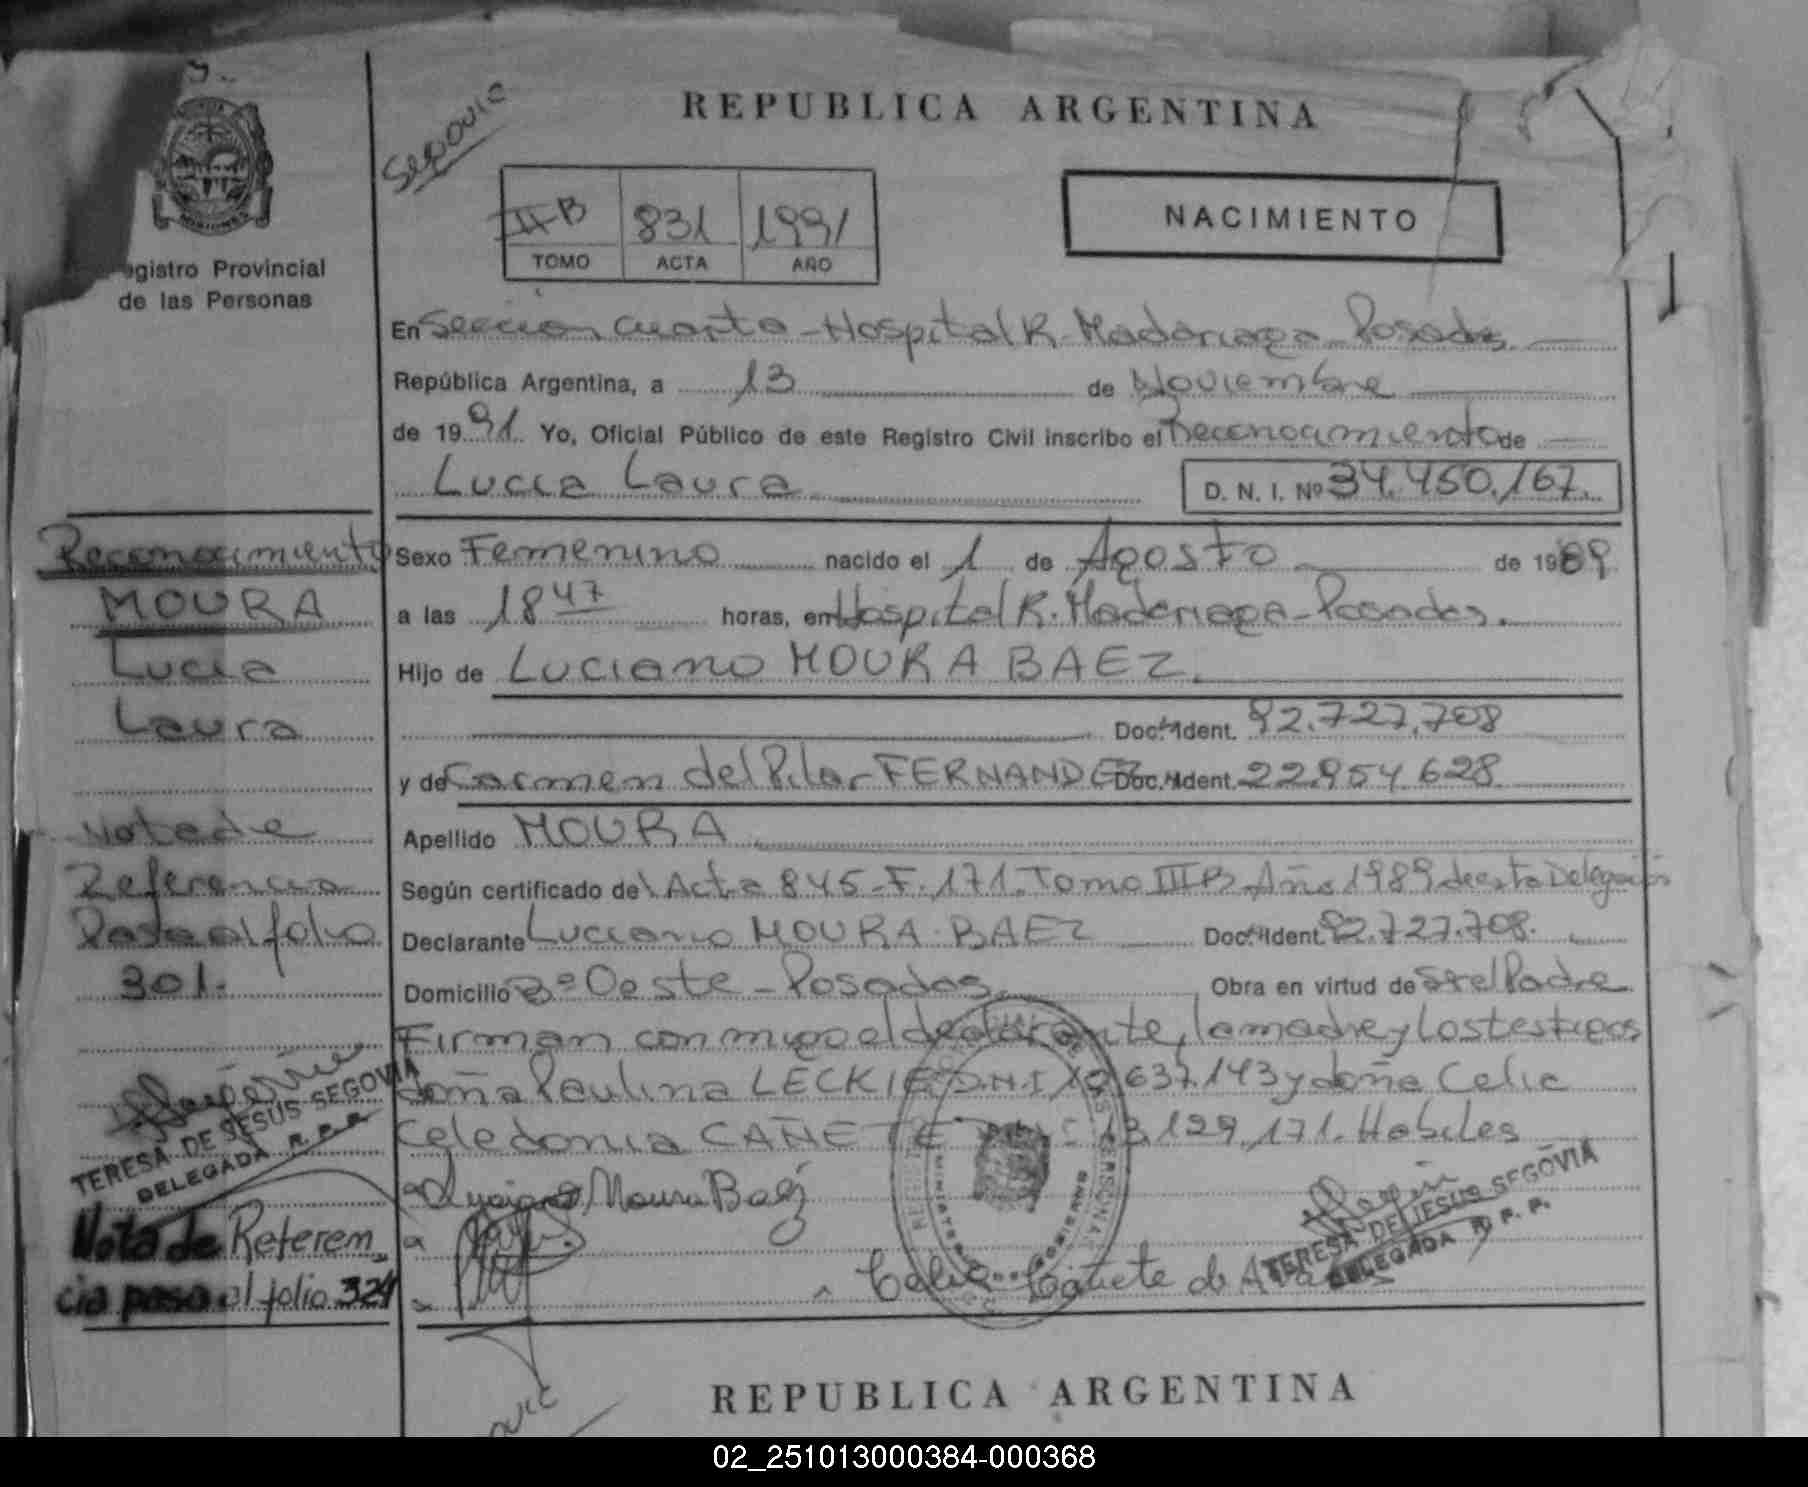 Segovia
REPUBLICA ARGENTINA
II-B 831 1991
TOMO ACTA AÑO
NACIMIENTO
egistro Provincial
de las Personas
En Sección Cuarta - Hospital R. Madariaga - Posadas
República Argentina, a 13 de Noviembre
de 1991 Yo, Oficial Público de este Registro Civil inscribo el Reconocimiento de
Lucia Laura D. N. I. Nº 34.450.167.
Reconocimiento
MOURA
Lucia
Laura
Nota de
Referencia
Pasa al folio
301.
TERESA DE JESUS SEGOVIA
DELEGADA R. P. P.
Nota de Referen
cia pasa al folio 324
Sexo Femenino nacido el 1 de Agosto de 1989
a las 18 47 horas, en Hospital R. Madariaga - Posadas.
Hijo de Luciano MOURA BAEZ.
Doc. Ident. 92.727.708
y de Carmen del Pilar FERNANDEZ Doc. Ident. 22.954.628
Apellido MOURA
Según certificado del Acta 845 - F. 171. Tomo III B - Año 1989 de esta Delegación
Declarante Luciano MOURA BAEZ Doc. Ident. 92.727.708.
Domicilio Bº Oeste - Posadas. Obra en virtud de ser el Padre
Firman conmigo el declarante, la madre y los testigos
doña Paulina LECKIE D.N.I. 637.143 y doña Celia
Celedonia CAÑETE 13.129.171. Habiles
Luciano Moura Baéz
Celia Cañete de
TERESA DE JESUS SEGOVIA
DELEGADA R. P. P.
REPUBLICA ARGENTINA
02_251013000384-000368